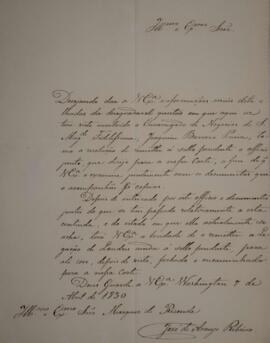 Illmo e Exmo Snr.
Desejando dar a V Exa informações mais deta-
lhadas da desagradavel questão em que aqui se
tem visto envolvido o Encarregado de Negocios de S.
Magde Fidelissima, Joaquim Barroso Pereira, to-
mo a resolução de remetter a sello volante o officio
junto, que dirijo para a nossa Corte, a fim de q'
V Exa o examine juntamente com os documentos que
o acompanhão por copias.
Depois de inteirado por este officio e documentos
juntos do que se tem passado relativamente a esta
contenda, e do estado em que ella actualmente se
acha, terá V Exa a bondade de o remetter a Le-
gação de Londres sendo a sello volante, para
ali ser, depois de visto, fechado e encaminhado
para a nossa Corte.
Deus Guarde a V Exa Washington 7 de
Abril de 1830
Illmo e Exmo Snr Marquez de Rezende
José de Araujo Ribeiro